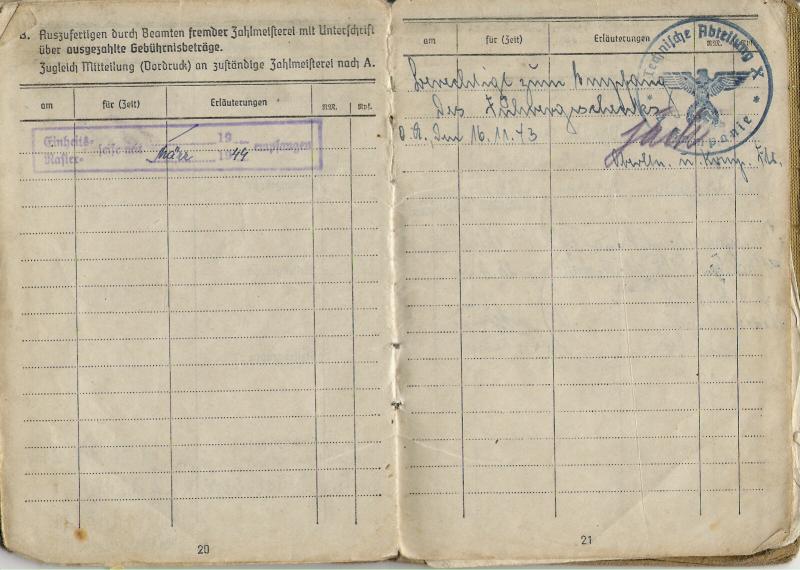 B. Auszufertigen durch Beamten fremder Zahlmeisterei mit Unterschrift
über ausgezahlte Gebührnisbeträge.
Zugleich Mitteilung (Vordruck) an zuständige Zahlmeisterei nach A.
am für (Zeit) Erläuterungen RM. Rpf.
Einheits- 19
Rasier- seife mit März 1944 empfangen
20
am für (Zeit) Erläuterungen RM. Rpf.
Technische Abteilung X
Kompanie
Berechtigt zum Empfang
des Führergeschenks
O.U., den 16.11.43
Oberltn. u. Komp.
21